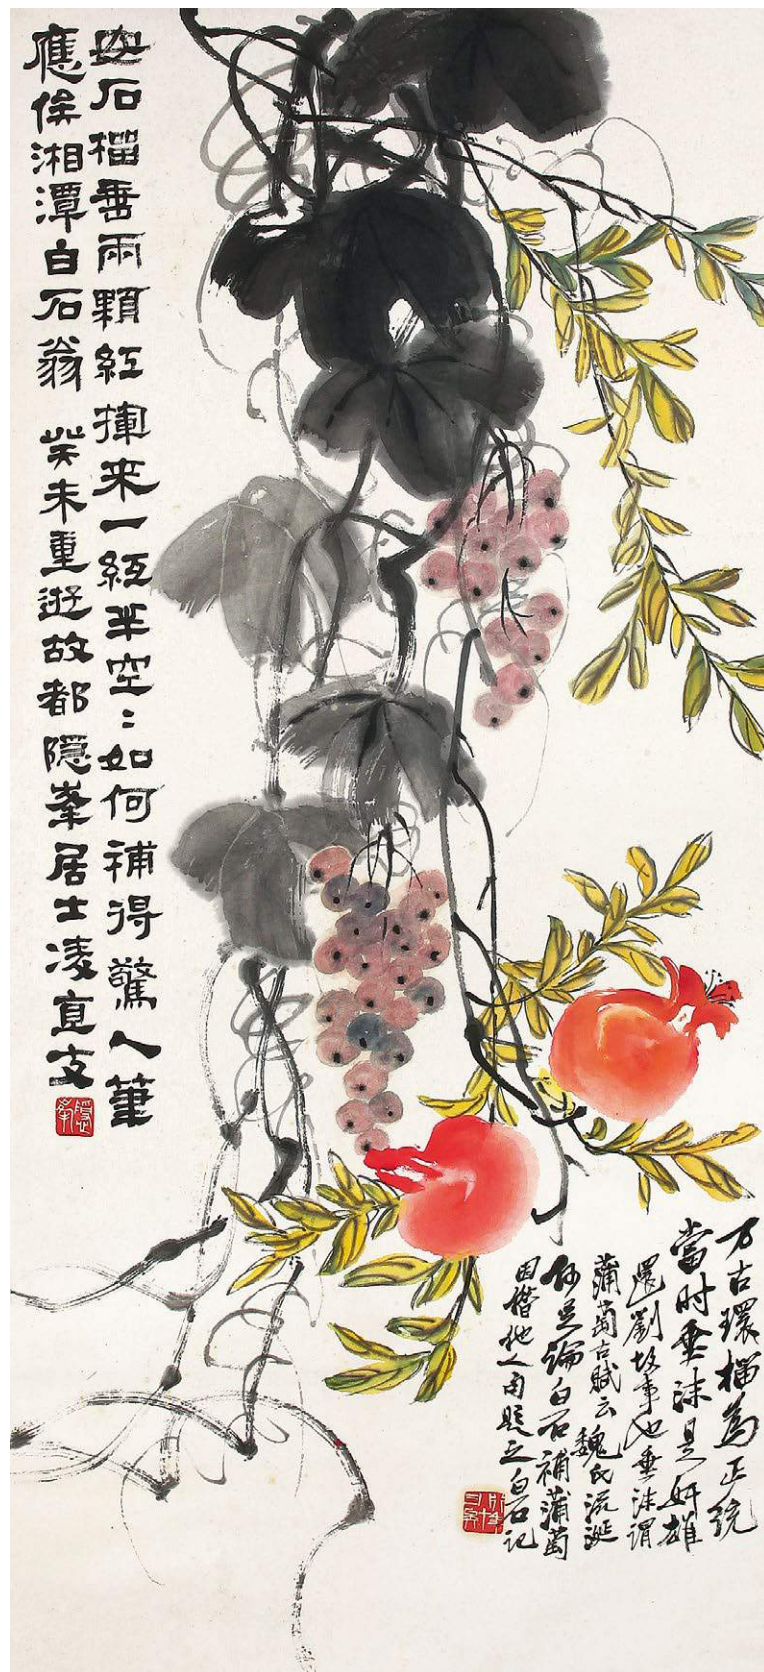 安石榴垂兩顆紅揮來一紙半空〻如何補得驚人筆
應俟湘潭白石翁 癸未重遊故都隱峯居士凌直支
隱峯
万古環榴為正統
當时垂沫是奸雄
還劉故事也垂沫謂
蒲萄古賦云魏氏流涎
何足論白石補蒲萄
因借他人句題之白石記